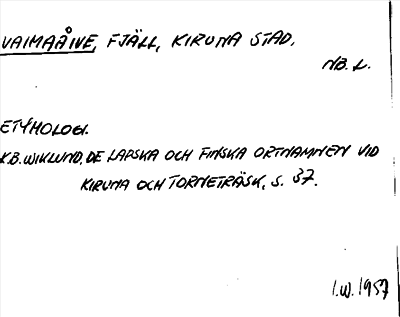 VAIMAÅIVE, FJÄLL, KIRUNA STAD.
NB. L.
ETYMOLOGI.
K.B. WIKLUND, DE LAPSKA OCH FINSKA ORTNAMNEN VID
KIRUNA OCH TORNETRÄSK, S. 37.
I.W. 1957